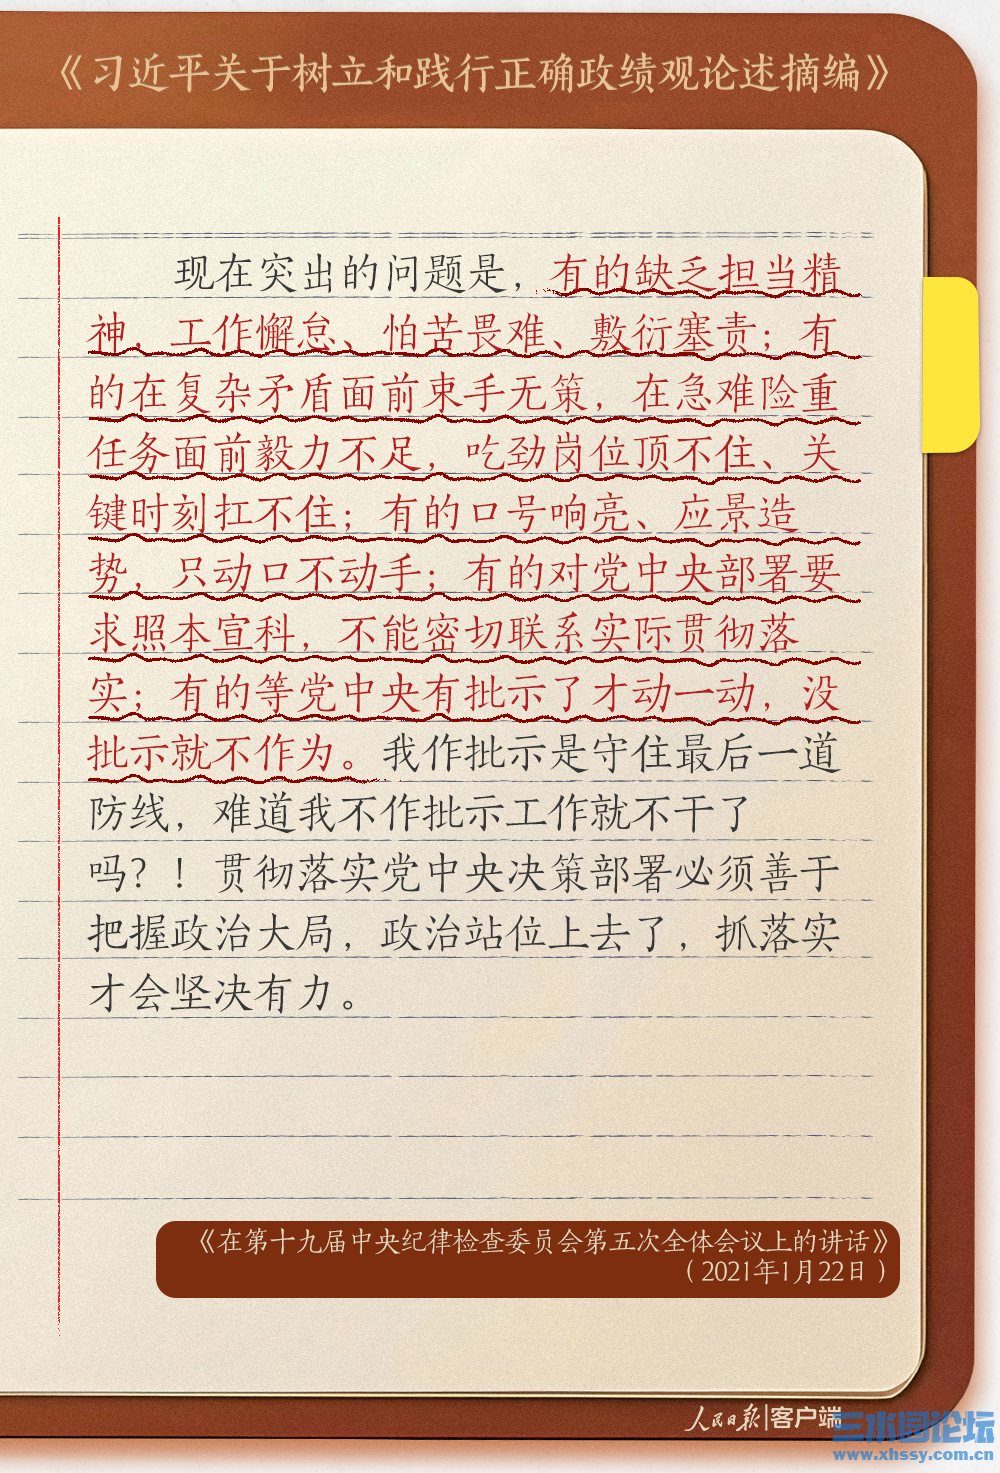 《习近平关于树立和践行正确政绩观论述摘编》
现在突出的问题是，有的缺乏担当精
神，工作懈怠、怕苦畏难、敷衍塞责；有
的在复杂矛盾面前束手无策，在急难险重
任务面前毅力不足，吃劲岗位顶不住、关
键时刻扛不住；有的口号响亮、应景造
势，只动口不动手；有的对党中央部署要
求照本宣科，不能密切联系实际贯彻落
实；有的等党中央有批示了才动一动，没
批示就不作为。我作批示是守住最后一道
防线，难道我不作批示工作就不干了
吗？！贯彻落实党中央决策部署必须善于
把握政治大局，政治站位上去了，抓落实
才会坚决有力。
《在第十九届中央纪律检查委员会第五次全体会议上的讲话》
（2021年1月22日）
人民日报|客户端
三水园论坛
www.xhssy.com.cn